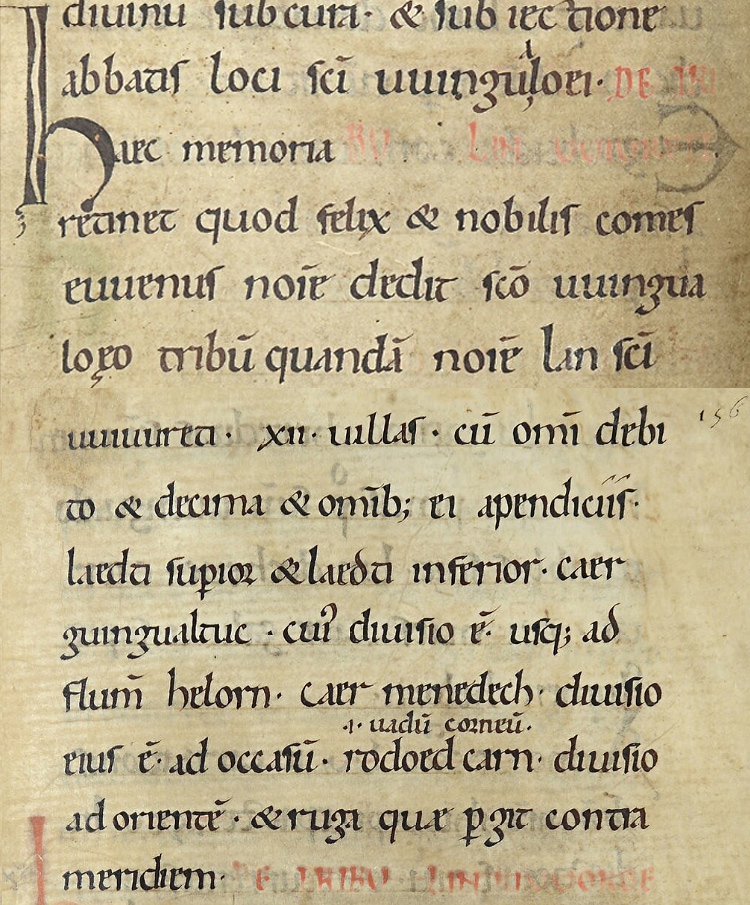 diuinu sub cura· & sub iectione
abbatis loci sc̄i uuingualoei· DE TRI
haec memoria BU LAN
retinet quod felix & nobilis comes
euuenus noīe dedit sc̄o uuingua
loęo tribū quandā noīe lan sc̄i
uuiuureti· xii· uillas· cū omī debi
156
to & decima & omīb; ei apendiciis·
laedti supior & laedti inferior· caer
guingualtuc· cui᾽ diuisio ē· usq; ad
flum̄ helorn· caer menedech· diuisio
·i· uadū corneū·
eius ē· ad occasū· rodoed carn· diuisio
ad orientē· & ruga quæ ꝑgit contra
meridiem· DE TRIBU